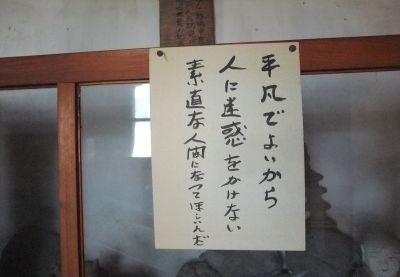 平凡でよいから
人に迷惑をかけない
素直な人間になってほしいんだ